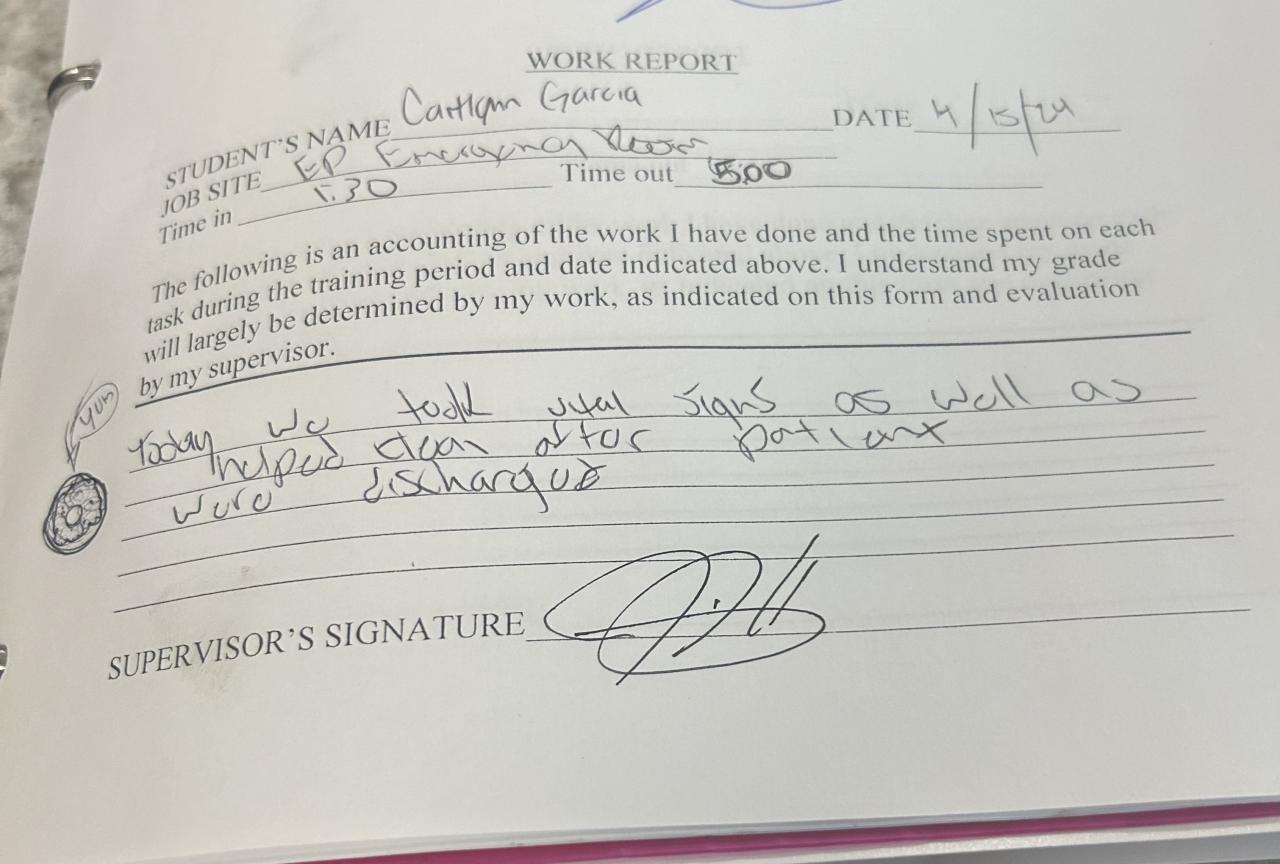 WORK REPORT
STUDENT'S NAME Caitlynn Garcia DATE 4/15/24
JOB SITE EP Emergency Room
Time in 1:30 Time out 5:00
The following is an accounting of the work I have done and the time spent on each
task during the training period and date indicated above. I understand my grade
will largely be determined by my work, as indicated on this form and evaluation
by my supervisor.
yum
Today we took vital signs as well as
helped clean after patient
were discharge
SUPERVISOR'S SIGNATURE